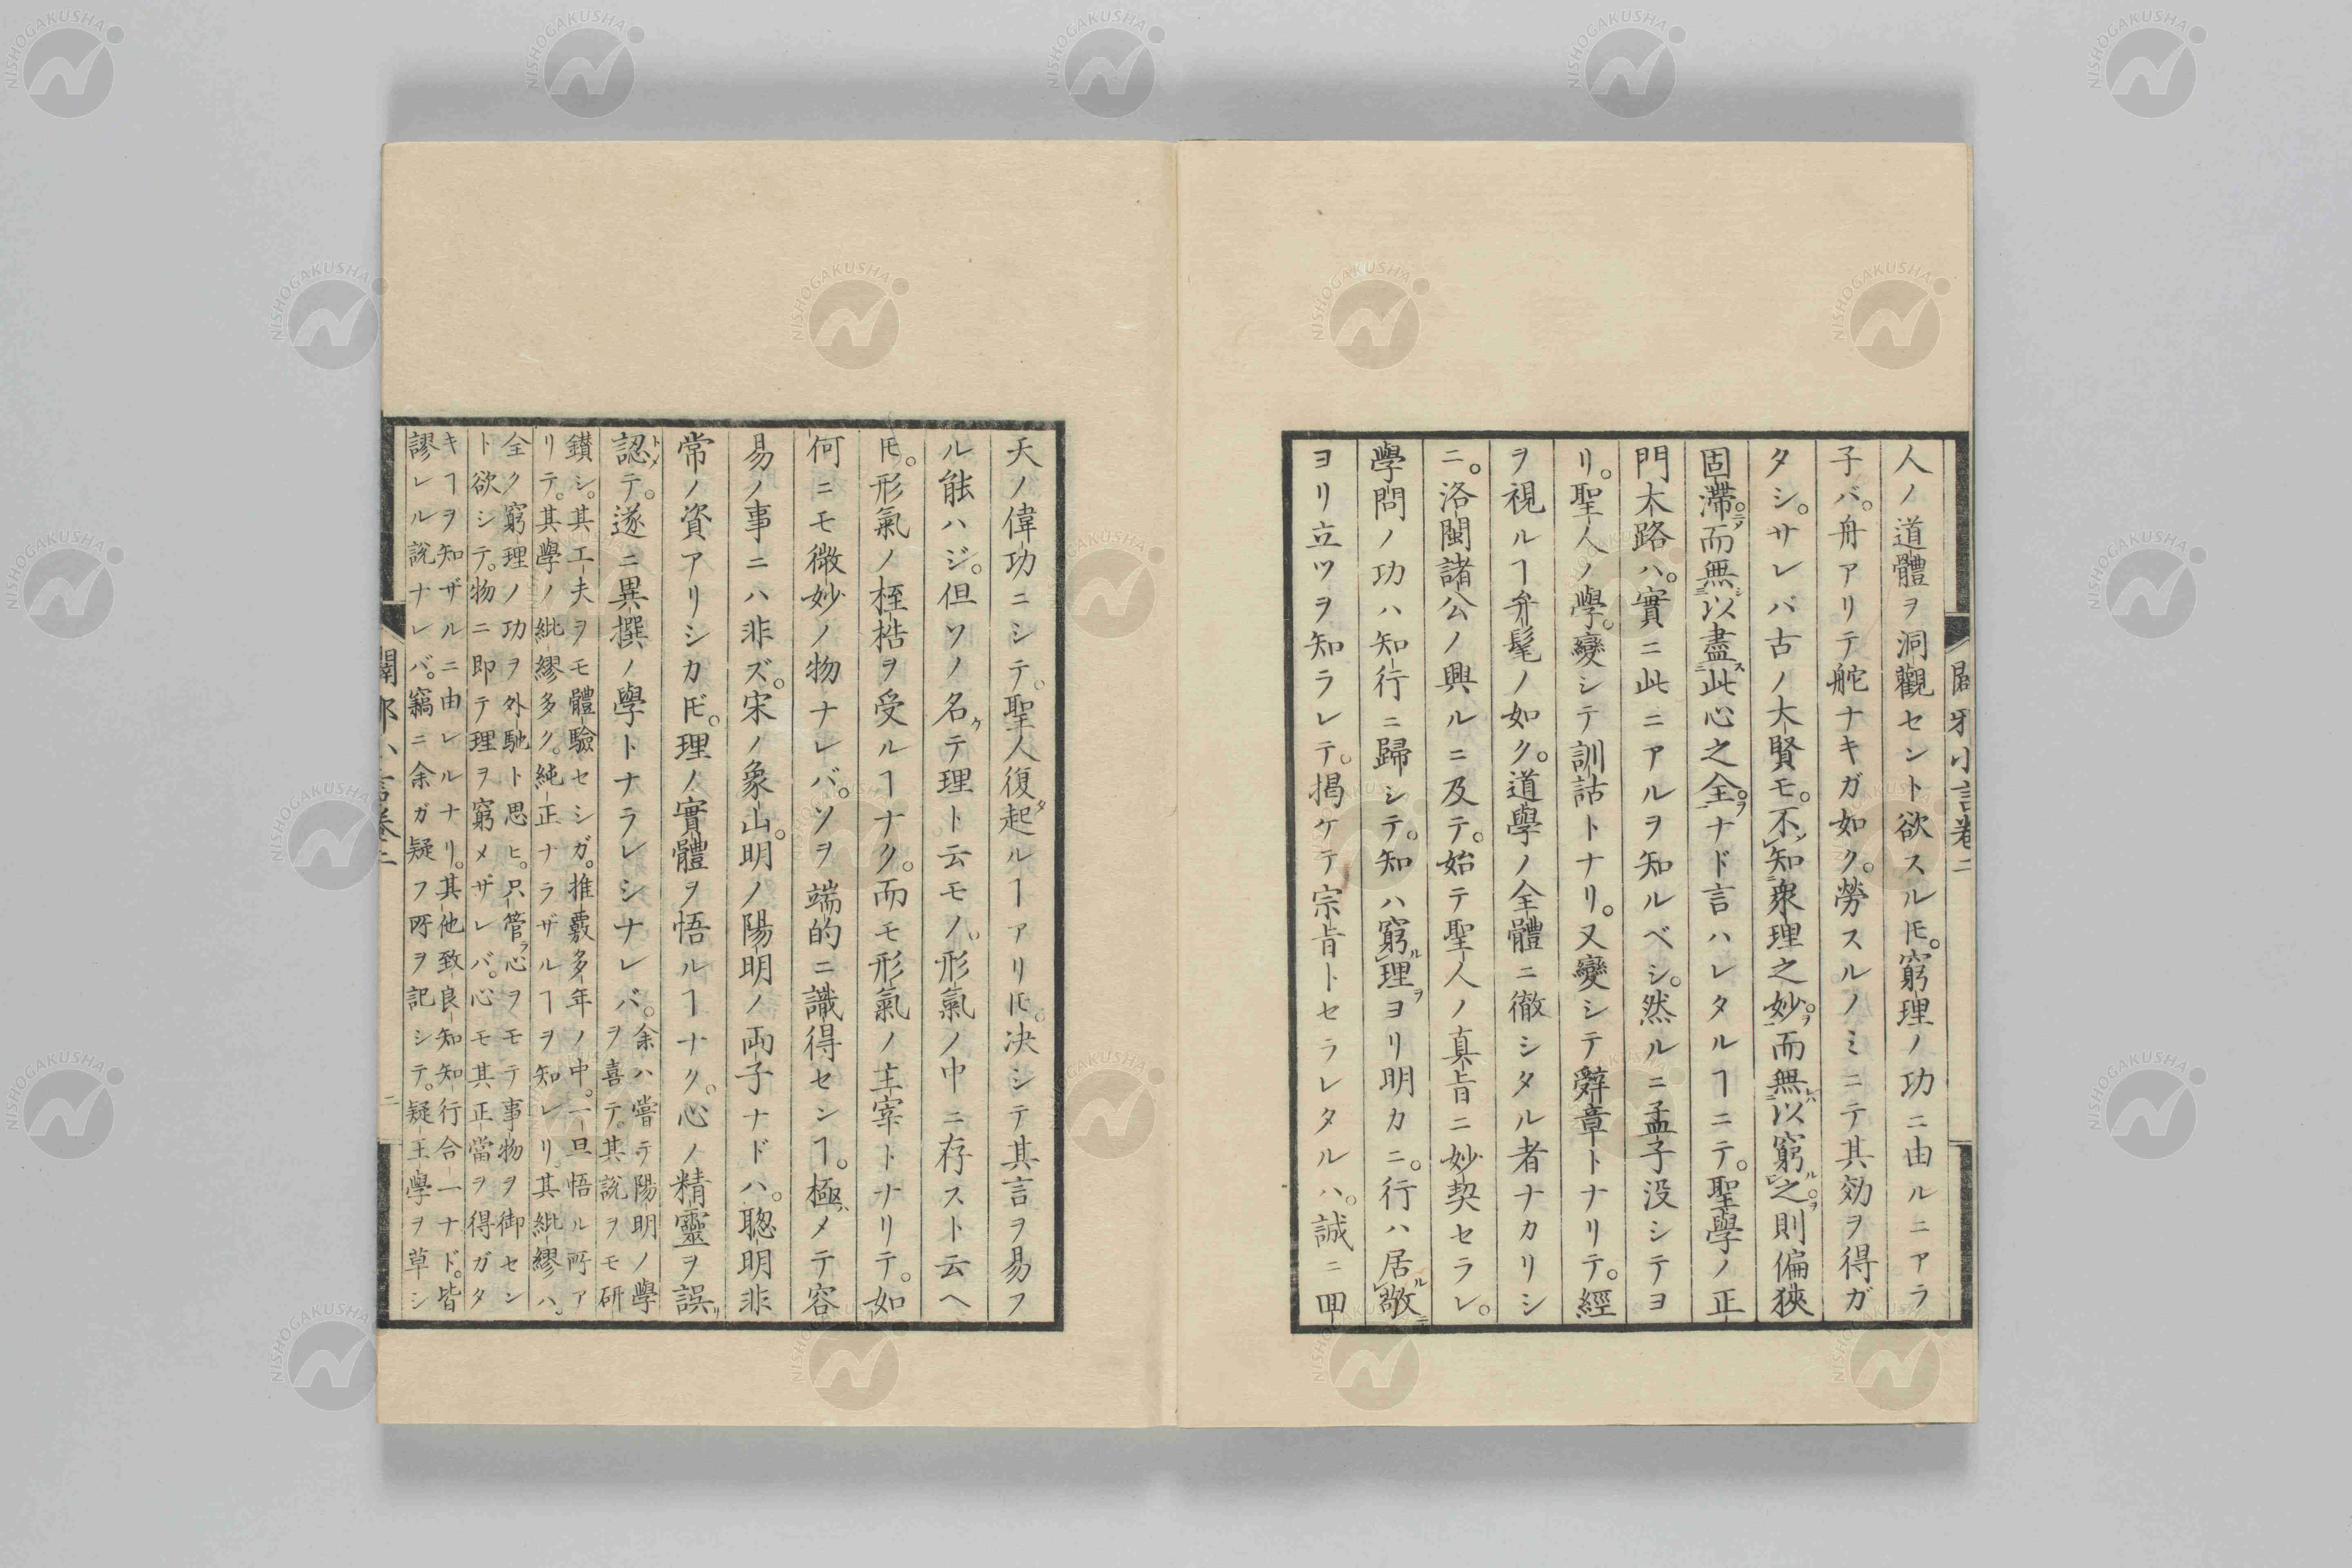 闢邪小言卷二
人ノ道體ヲ洞觀セント欲スル𪜈。窮理ノ功ニ由ルニアラ
子バ。舟アリテ舵ナキガ如ク。勞スルノミニテ其効ヲ得ガ
タシ。サレバ古ノ大賢モ。不知衆理之妙。而無以窮之。則偏狹
固滯。而無以盡此心之全。ナド言ハレタルヿニテ。聖學ノ正
門大路ハ。實ニ此ニアルヲ知ルベシ。然ルニ孟子没シテヨ
リ。聖人ノ學。變シテ訓詁トナリ。又變シテ辭章トナリテ。經
ヲ視ルヿ弁髦ノ如ク。道學ノ全體ニ徹シタル者ナカリシ
ニ。洛閩諸公ノ興ルニ及テ。始テ聖人ノ真旨ニ妙契セラレ。
學問ノ功ハ知行ニ歸シテ。知ハ窮理ヨリ明カニ。行ハ居敬
ヨリ立ツヲ知ラレテ。掲ケテ宗旨トセラレタルハ。誠ニ回
天ノ偉功ニシテ。聖人復起ルヿアリ𪜈。決シテ其言ヲ易フ
ル能ハジ。但ソノ名テ理ト云モノ。形氣ノ中ニ存スト云ヘ
𪜈。形氣ノ桎梏ヲ受ルヿナク。而モ形氣ノ主宰トナリテ。如
何ニモ微妙ノ物ナレバ。ソヲ端的ニ識得センヿ。極メテ容
易ノ事ニハ非ズ。宋ノ象山。明ノ陽明ノ両子ナドハ。聰明非
常ノ資アリシカ𪜈。理ノ實體ヲ悟ルヿナク。心ノ精靈ヲ誤
認テ。遂ニ異撰ノ學トナラレシナレバ。余ハ嘗テ陽明ノ學
ヲ喜テ。其説ヲモ研
鑚シ。其工夫ヲモ體驗セシガ。推覈多年ノ中。一旦悟ル所ア
リテ。其學ノ紕繆多ク。純正ナラザルヿヲ知レリ。其紕繆ハ。
全ク窮理ノ功ヲ外馳ト思ヒ。只管心ヲモテ事物ヲ御セン
ト欲シテ。物ニ即テ理ヲ窮メザレバ。心モ其正當ヲ得ガタ
キヿヲ知ザルニ由レルナリ。其他致良知知行合一ナド。皆
謬レル説ナレバ。竊ニ余ガ疑フ所ヲ記シテ。疑王學ヲ草シ
闢邪小言卷二
二